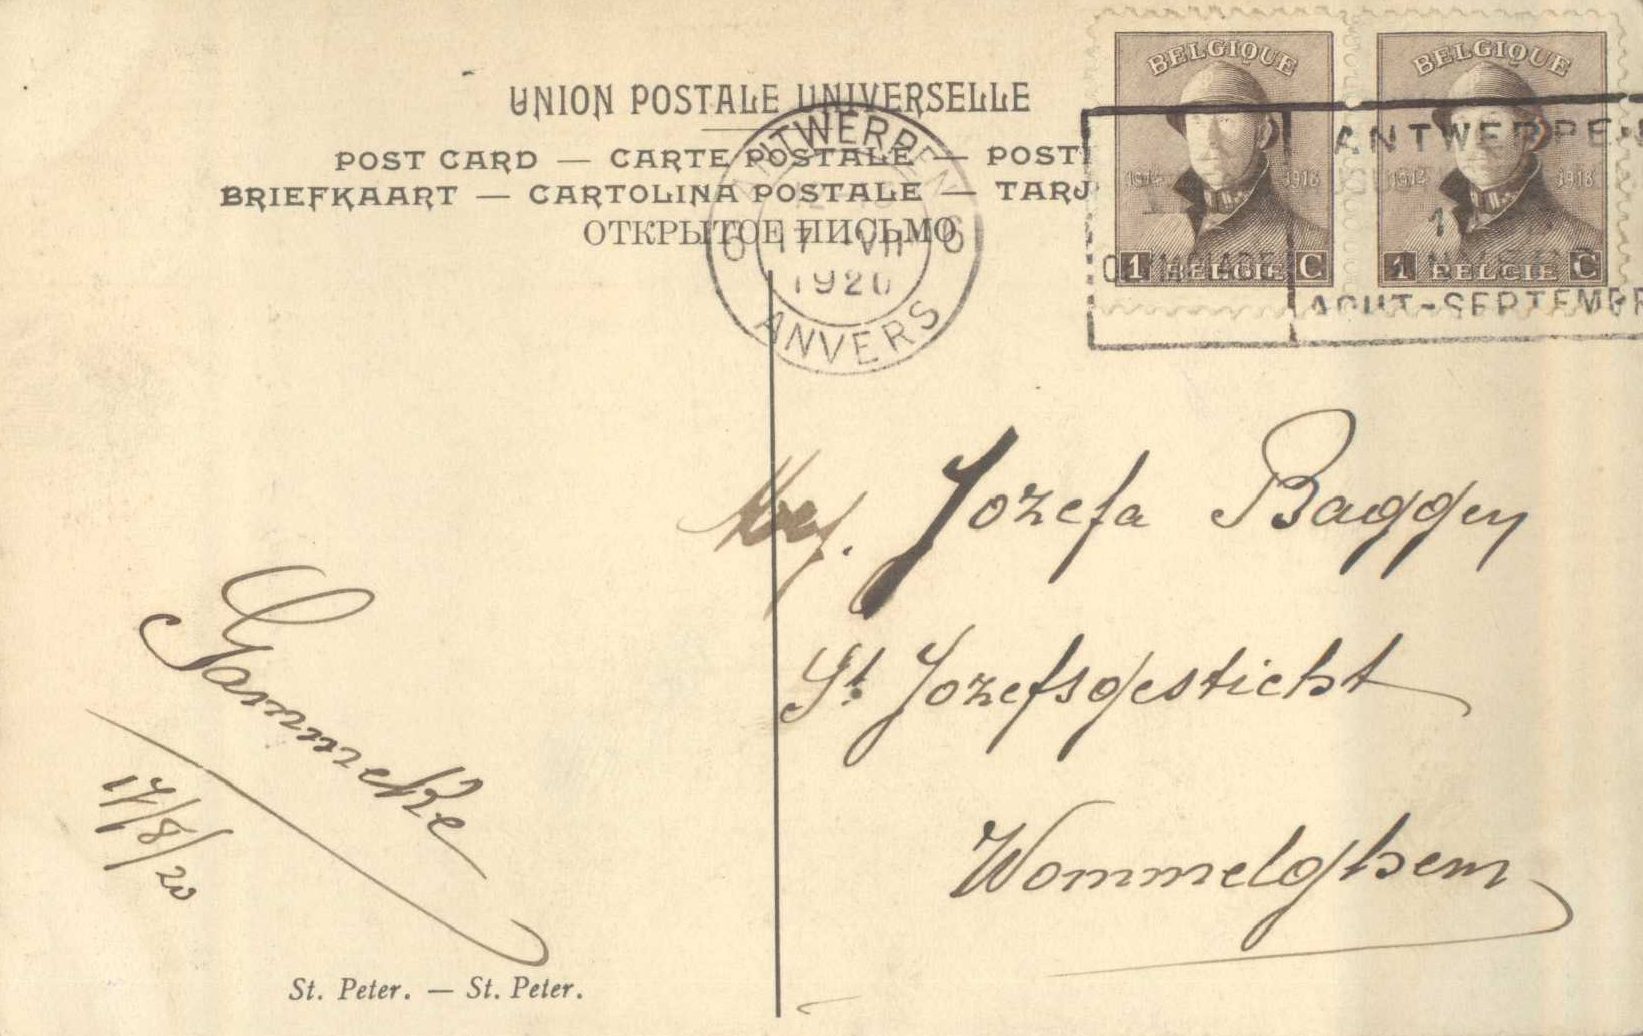 UNION POSTALE UNIVERSELLE
POST CARD — CARTE POSTALE — POST
BRIEFKAART — CARTOLINA POSTALE — TARJ
ОТКРЫТОЕ ПИСЬМО
ANTWERPEN
6 17 VII 6
1920
ANVERS
BELGIQUE
1914 1918
1 BELGIE C
BELGIQUE
1914 1918
1 BELGIE C
ANTWERPEN
AOUT-SEPTEMBRE
Mej. Jozefa Baggen
St Jozefsgesticht
Wommelghem
Janneke
17/8/20
St. Peter. — St. Peter.